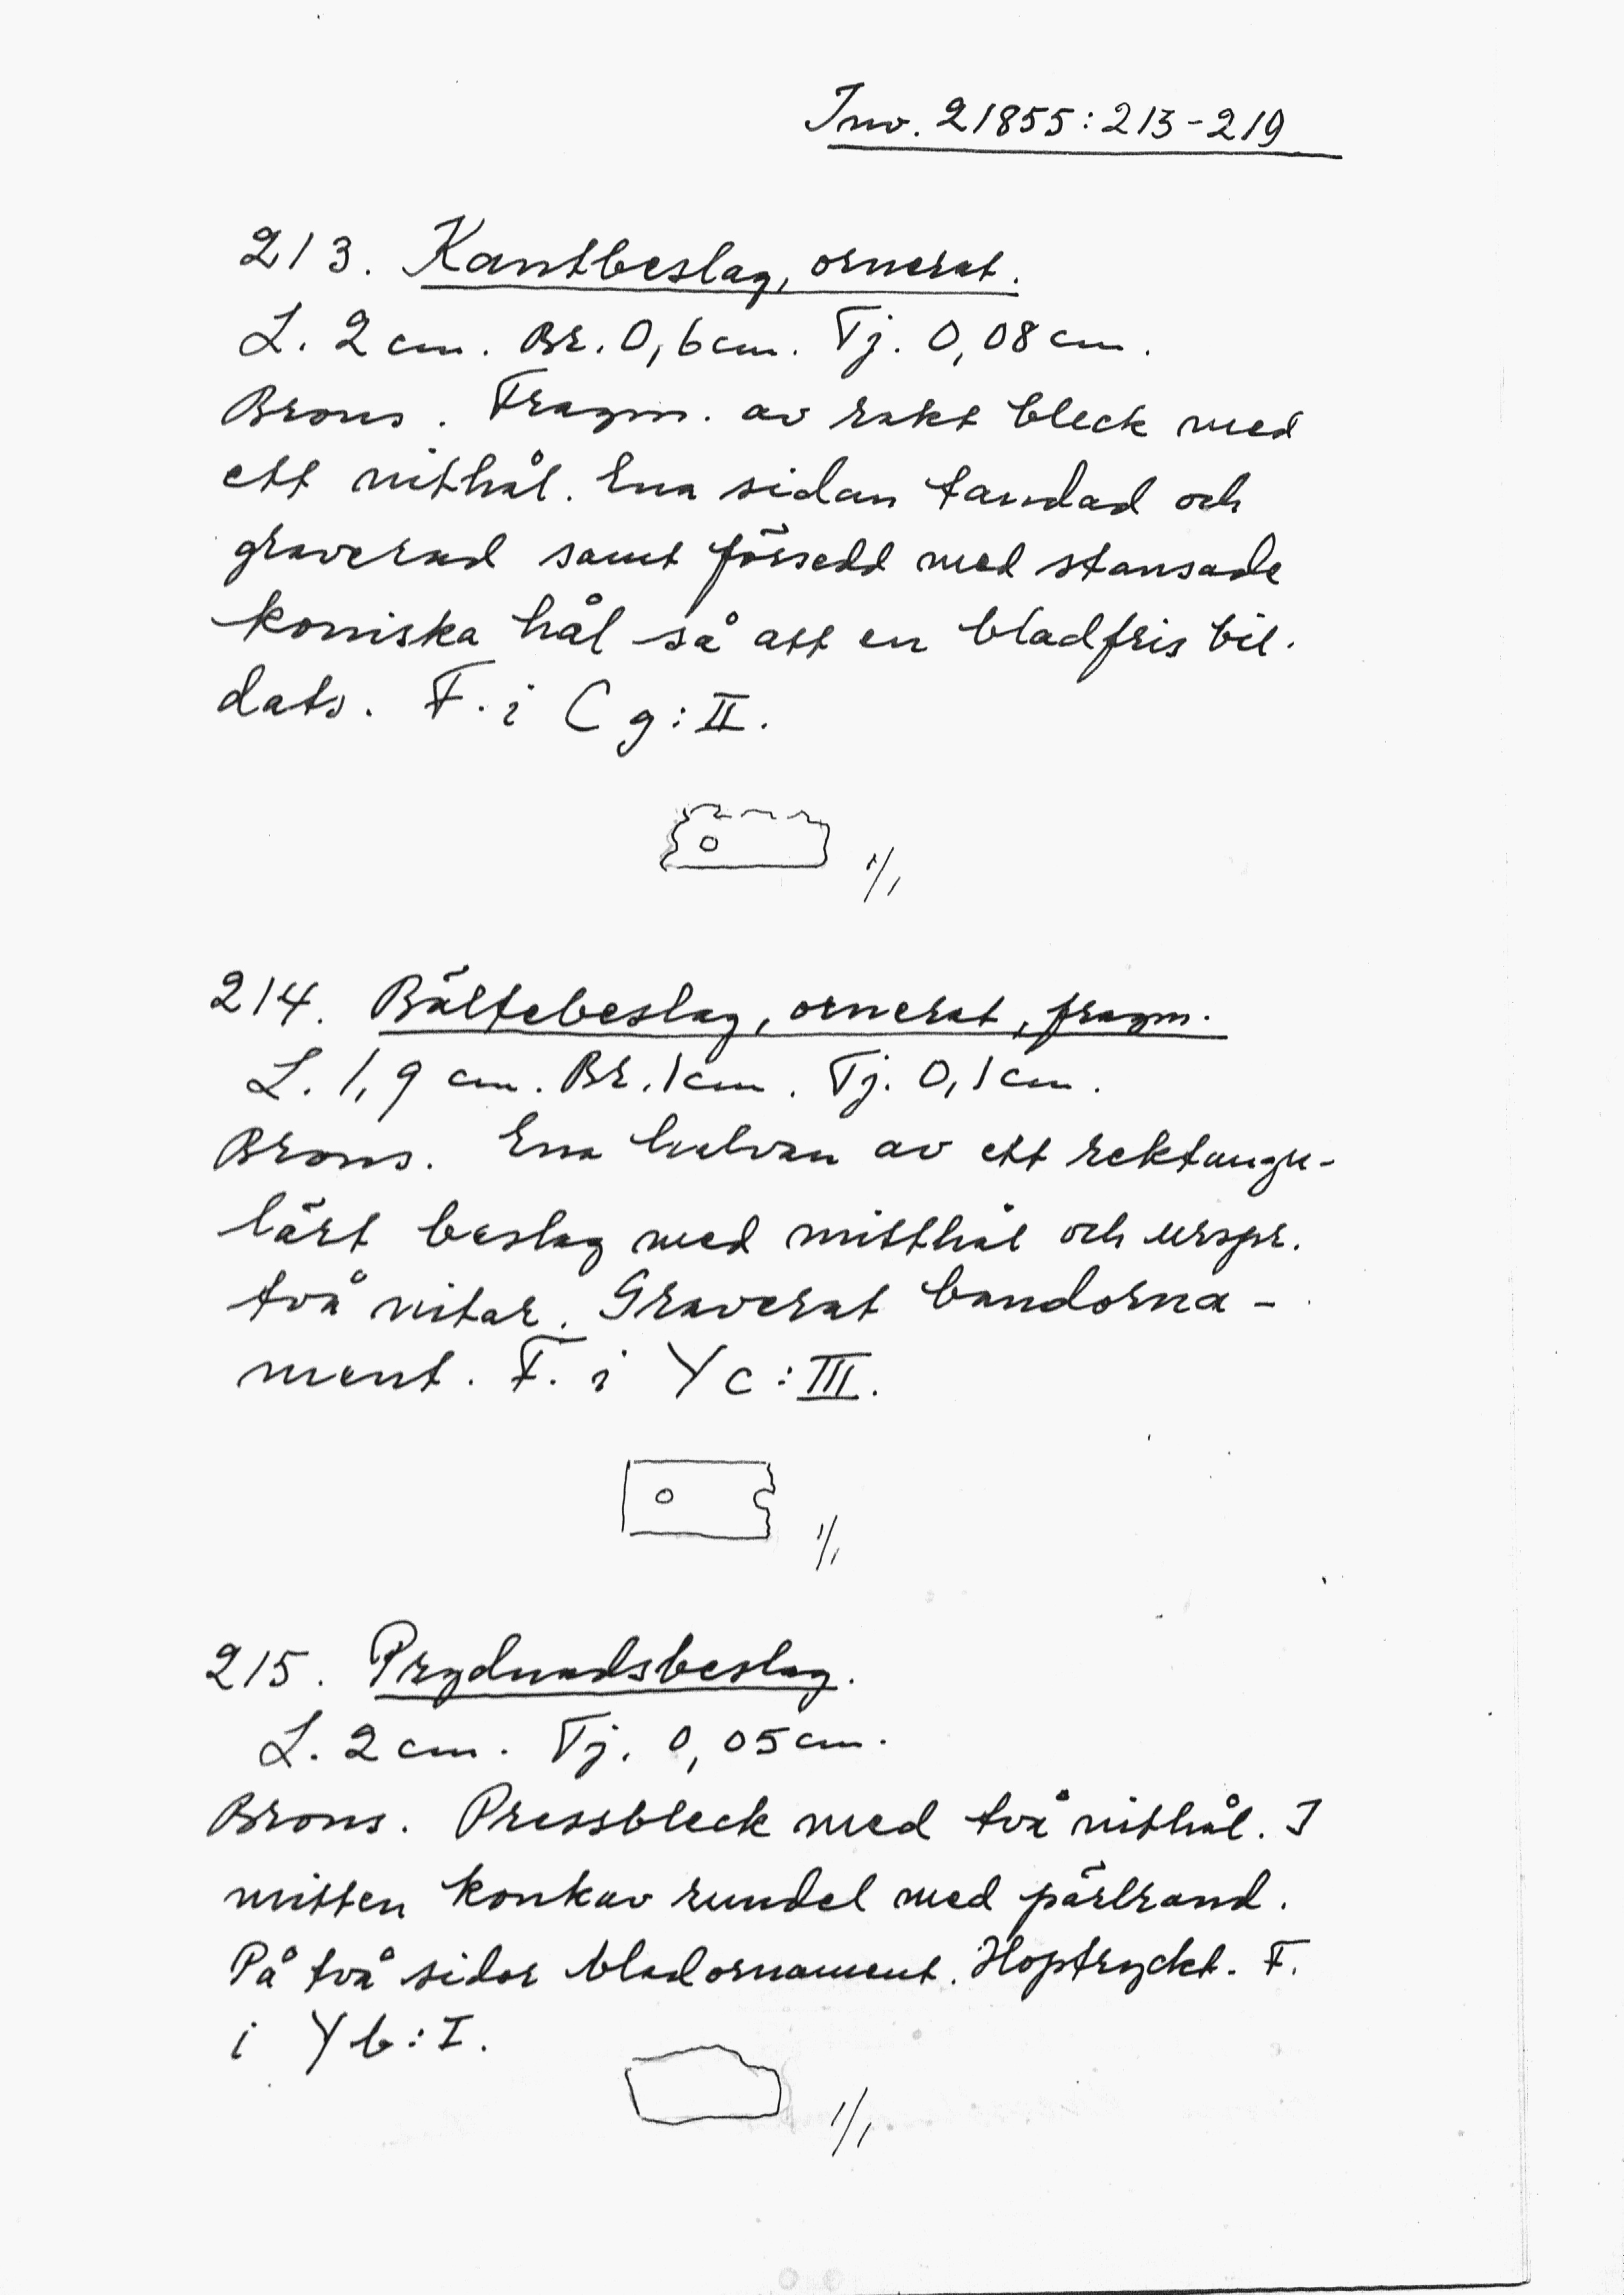 Inv. 21855:213-219
213. Kantbeslag, ornerat.
L. 2 cm. Br. 0,6 cm. Tj. 0,08 cm.
Brons. Fragm. av rakt bleck med
ett nithål. Ena sidan tandad och
graverad samt försedd med stansade
koniska hål så att en bladfris bil-
dats. F. i Cg:II.
1/1
214. Bältebeslag, ornerat, fragm.
L. 1,9 cm. Br. 1 cm. Tj. 0,1 cm.
Brons. Ena halvan av ett rektangu-
lärt beslag med mitthål och urspr.
två nitar. Graverat bandorna-
ment. F. i Yc:III.
1/1
215. Prydnadsbeslag.
L. 2 cm. Tj. 0,05 cm.
Brons. Pressbleck med två nithål. I
mitten konkav rundel med pärlrand.
På två sidor bladornament. Hoptryckt. F.
i Yb:I.
1/1